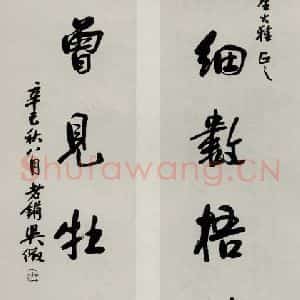 大雅正之
細數梧
曾見牡
辛巳秋八月老鋗吳徵
Shufawang.CN